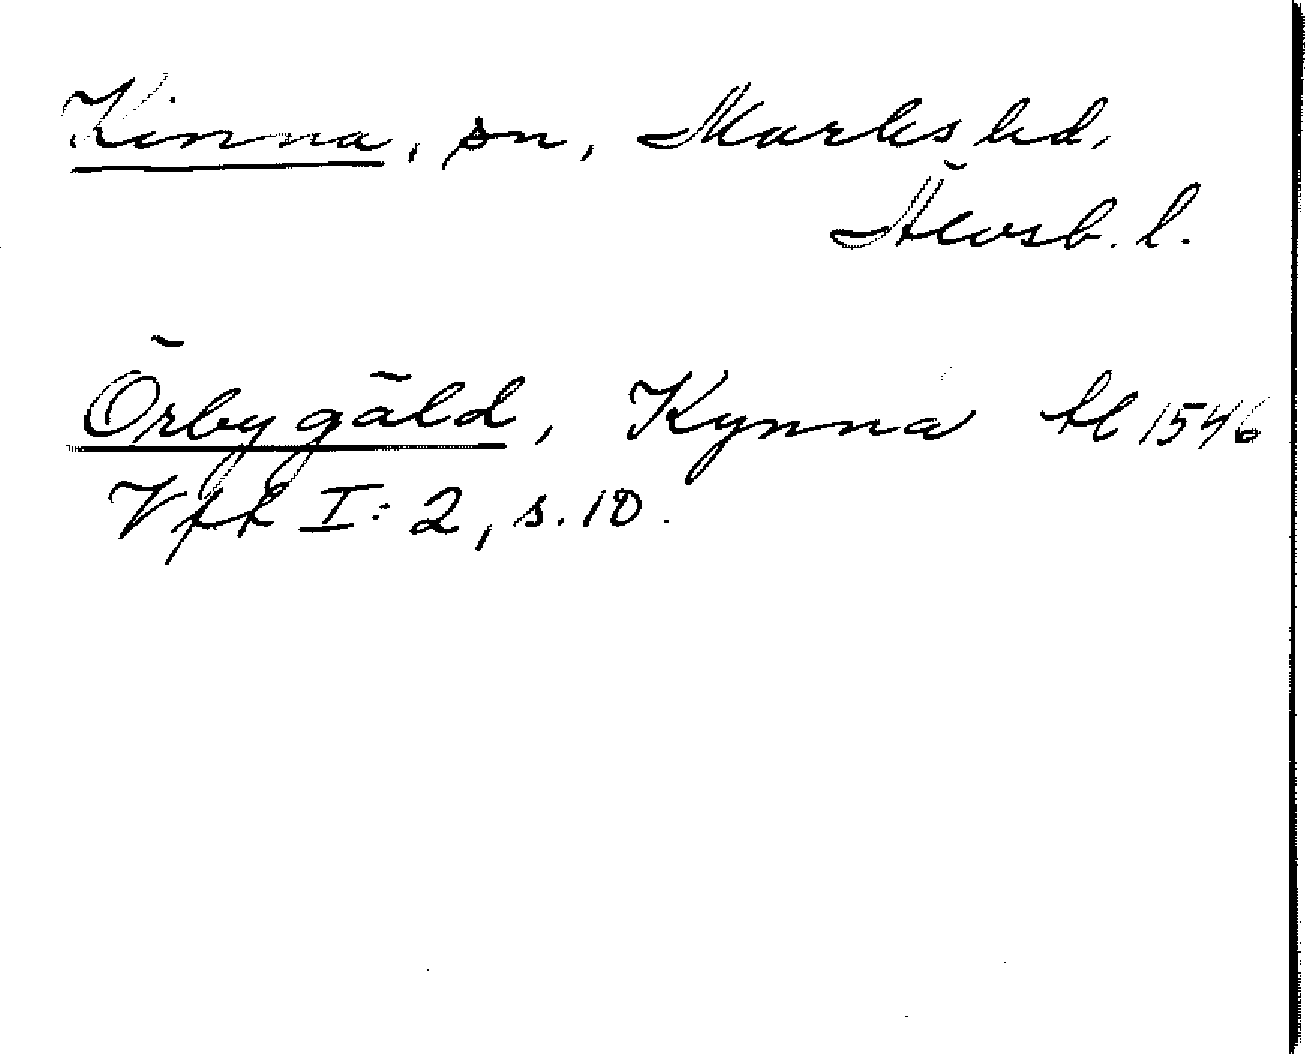 Kinna, sn, Marks hd,
Älvsb. l.
Örby gäld, Kynna hl 1546
Vfl I: 2, s. 10.